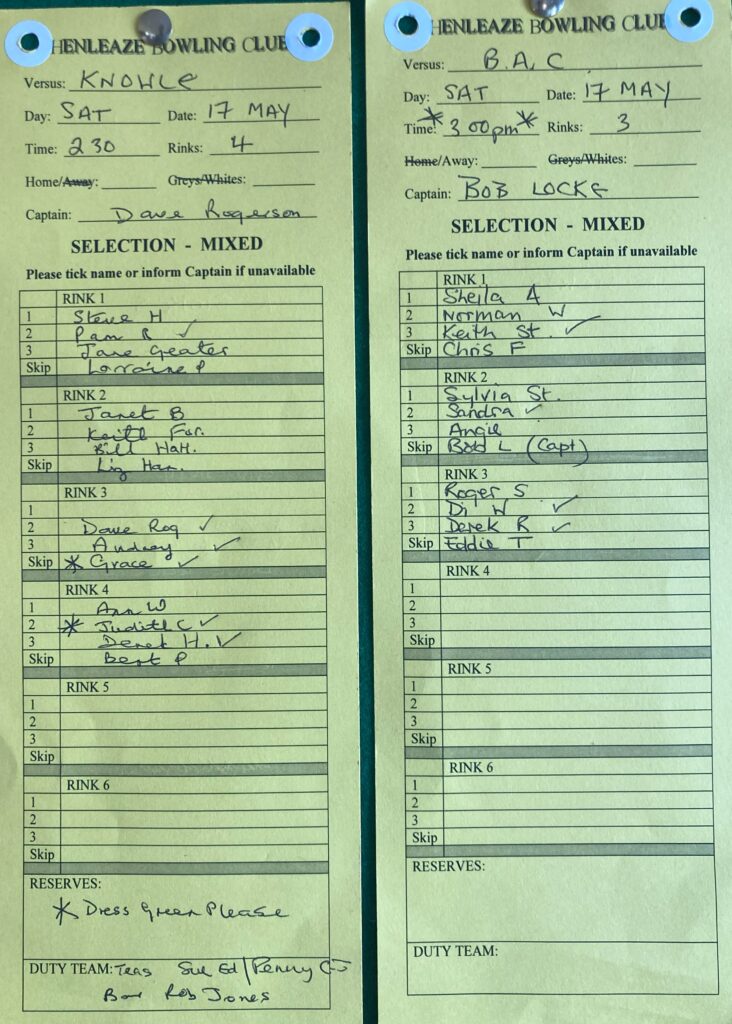 HENLEAZE BOWLING CLUB
Versus: KNOWLE
Day: SAT Date: 17 MAY
Time: 2 30 Rinks: 4
Home/Away: Greys/Whites:
Captain: Dave Rogerson
SELECTION - MIXED
Please tick name or inform Captain if unavailable
RINK 1
1 Steve H
2 Pam B ✓
3 Jane Geater
Skip Lorraine P
RINK 2
1 Janet B
2 Keith Far.
3 Bill Hatt.
Skip Liz Han.
RINK 3
1
2 Dave Rog ✓
3 Audrey ✓
Skip * Grace ✓
RINK 4
1 Ann W
2 * Judith C ✓
3 Derek H. ✓
Skip Bert P
RINK 5
1
2
3
Skip
RINK 6
1
2
3
Skip
RESERVES:
* Dress Green Please
DUTY TEAM: Teas Sue Ed/Penny C-J
Bar Rob Jones
HENLEAZE BOWLING CLUB
Versus: B.A.C
Day: SAT Date: 17 MAY
Time: * 3 00pm * Rinks: 3
Home/Away: Greys/Whites:
Captain: BOB LOCKE
SELECTION - MIXED
Please tick name or inform Captain if unavailable
RINK 1
1 Sheila A
2 Norman W
3 Keith St. ✓
Skip Chris F
RINK 2
1 Sylvia St.
2 Sandra ✓
3 Angie
Skip Bob L (Capt)
RINK 3
1 Roger S
2 Di W ✓
3 Derek R ✓
Skip Eddie T
RINK 4
1
2
3
Skip
RINK 5
1
2
3
Skip
RINK 6
1
2
3
Skip
RESERVES:
DUTY TEAM: